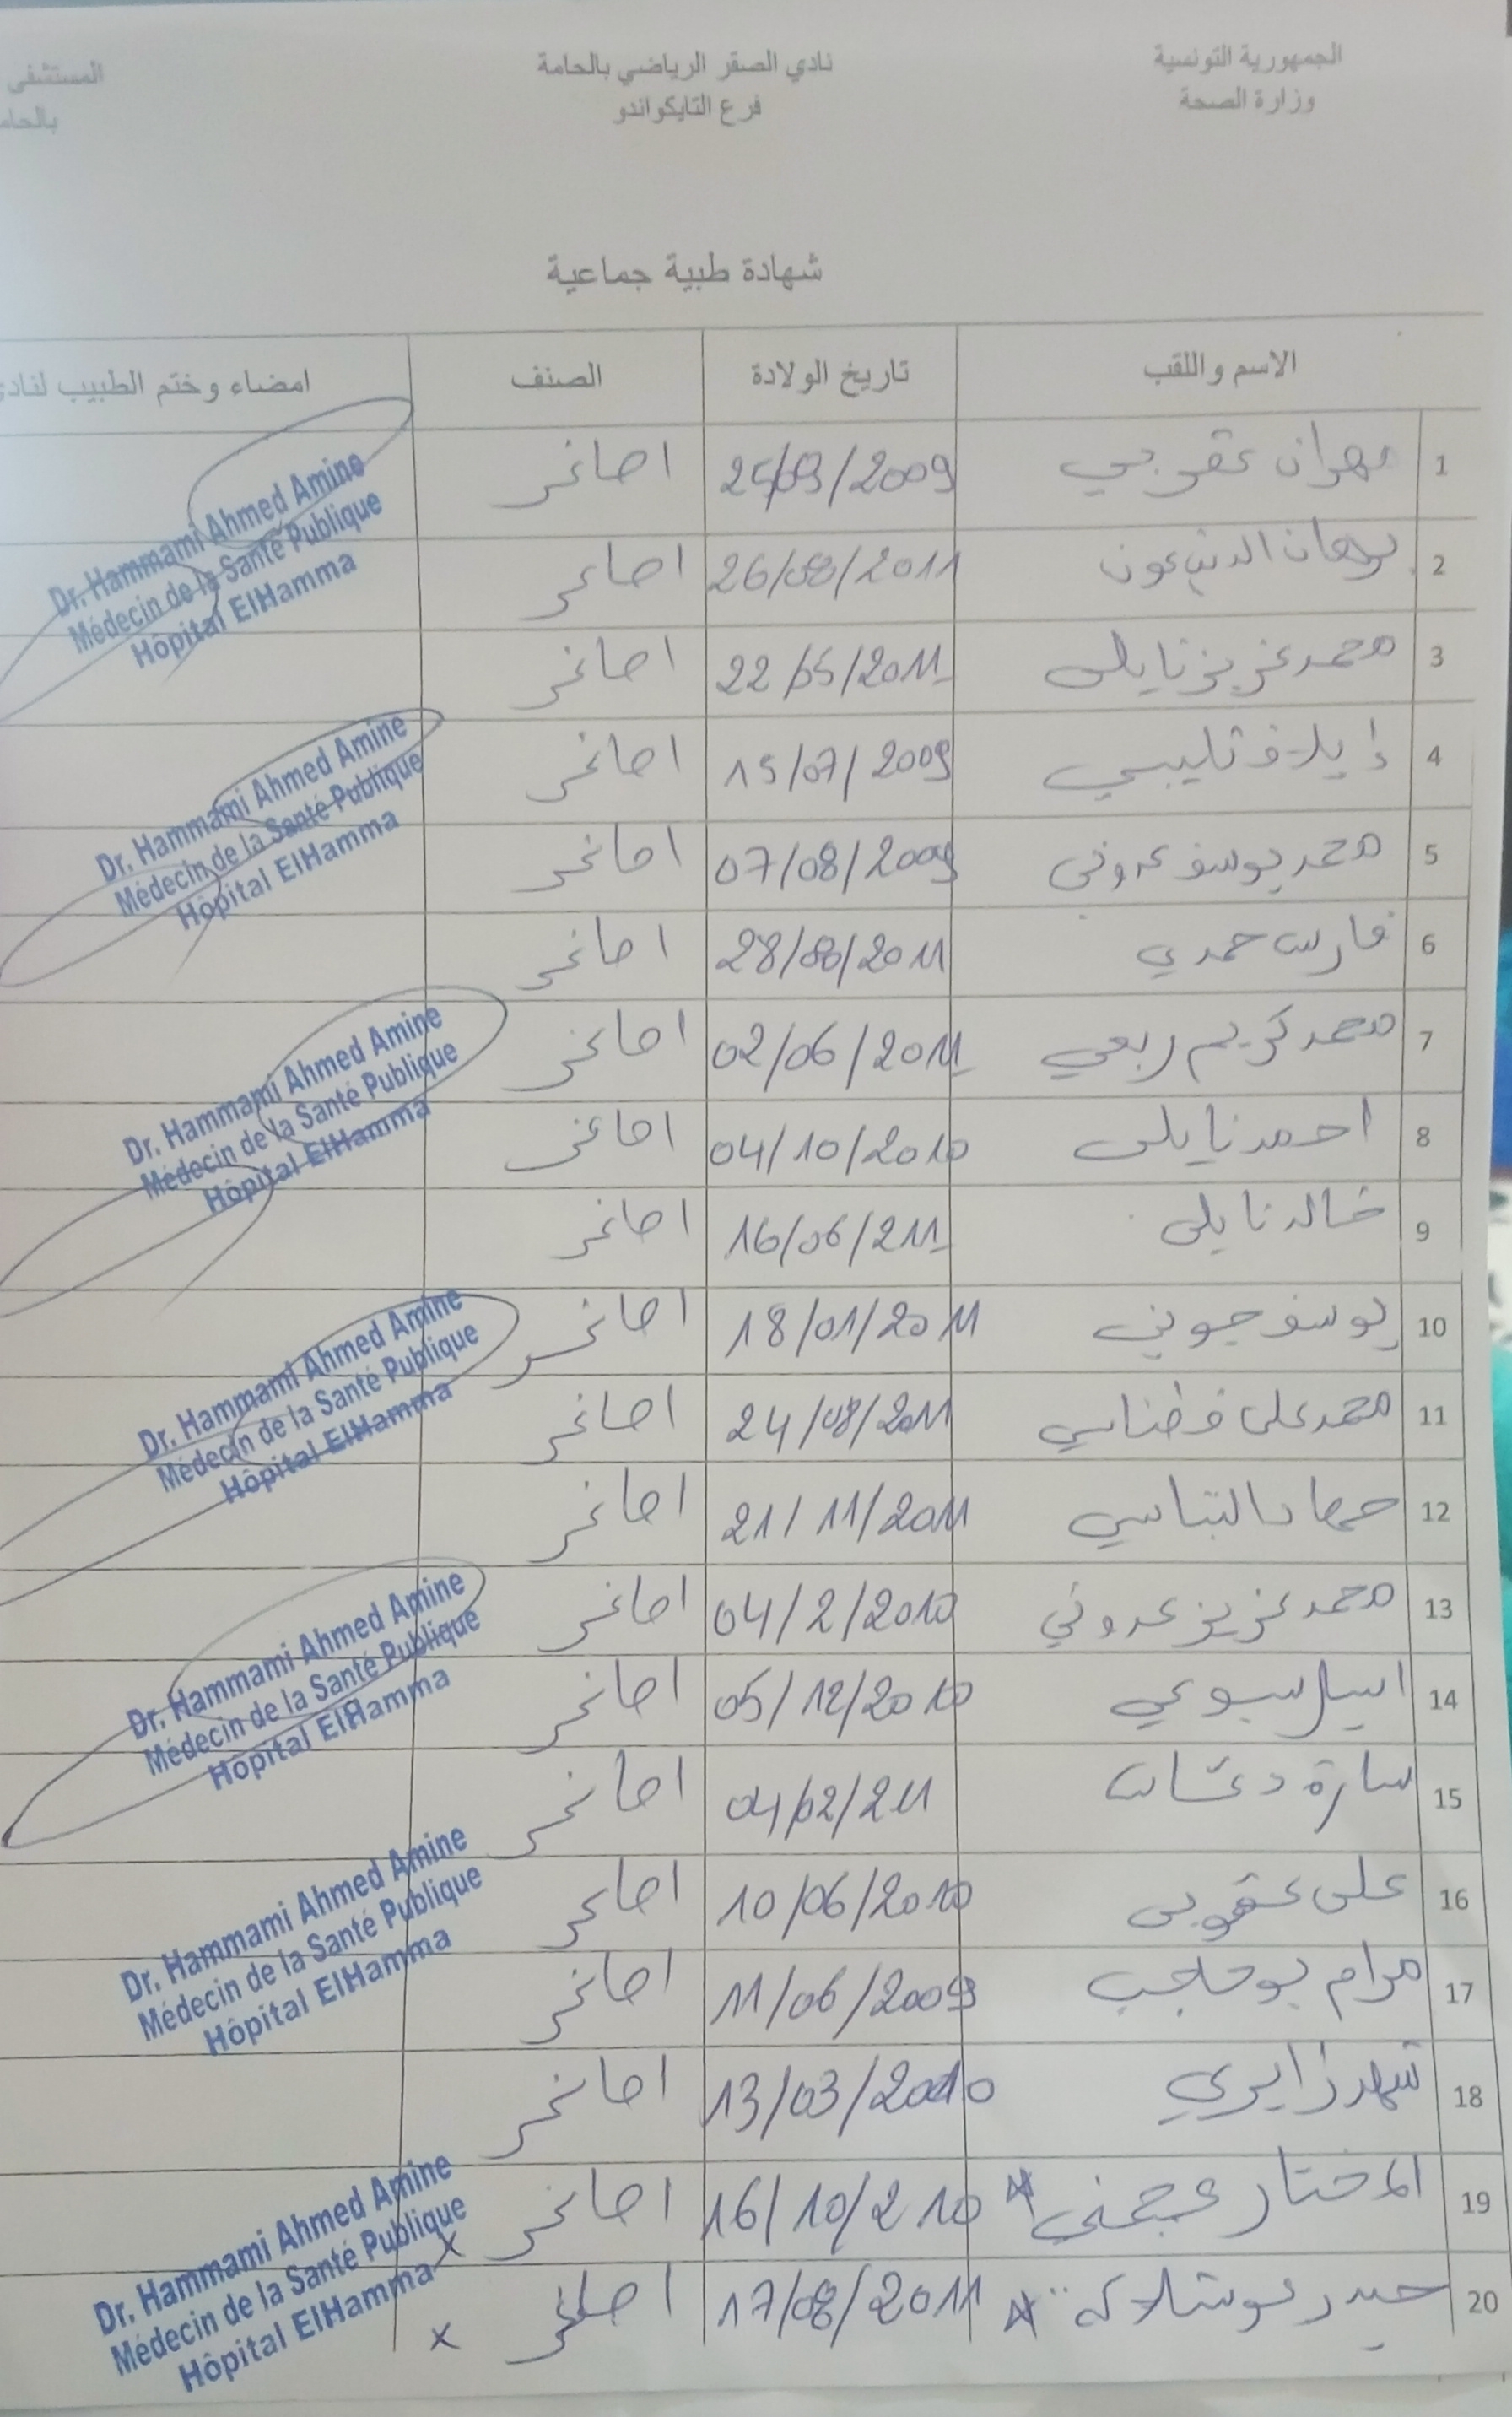 الجمهورية التونسية
وزارة الصحة
نادي الصقر الرياضي بالحامة
فرع التايكواندو
المستشفى
شهادة طبية جماعية
الاسم واللقب تاريخ الولادة الصنف امضاء وختم الطبيب
1 مهران عقوبي 2009 اصاغر
2 برهان الدين عون 26/08/2011 اصاغر
3 محمد عزيز نايلي 22/05/2011 اصاغر
4 إيلاف ثليبي 15/07/2009 اصاغر
5 محمد يوسف عروقي 07/08/2009 اصاغر
6 فارس حمدي 28/08/2011 اصاغر
7 محمد كريم ربعي 02/06/2011 اصاغر
8 احمد نايلي 04/10/2010 اصاغر
9 خالد نايلي 16/06/211 اصاغر
10 يوسف جويني 18/01/2011 اصاغر
11 محمد علي قطناسي 24/08/2011 اصاغر
12 21/11/2011 اصاغر
13 محمد عزيز عروقي 04/2/2010 اصاغر
14 اسيل سبوعي 05/12/2010 اصاغر
15 سارة 04/02/211 اصاغر
16 علي عقوبي 10/06/2010 اصاغر
17 مرام بوحاجب 11/06/2009 اصاغر
18 شهد زايري 13/03/2010 اصاغر
19 المختار عجمي 16/10/210 اصاغر x
20 حيدر بوشلاكة 17/08/2011 اصاغر x
Dr. Hammami Ahmed Amine
Médecin de la Santé Publique
Hôpital ElHamma
Dr. Hammami Ahmed Amine
Médecin de la Santé Publique
Hôpital ElHamma
Dr. Hammami Ahmed Amine
Médecin de la Santé Publique
Hôpital ElHamma
Dr. Hammami Ahmed Amine
Médecin de la Santé Publique
Hôpital ElHamma
Dr. Hammami Ahmed Amine
Médecin de la Santé Publique
Hôpital ElHamma
Dr. Hammami Ahmed Amine
Médecin de la Santé Publique
Hôpital ElHamma
Dr. Hammami Ahmed Amine
Médecin de la Santé Publique
Hôpital ElHamma